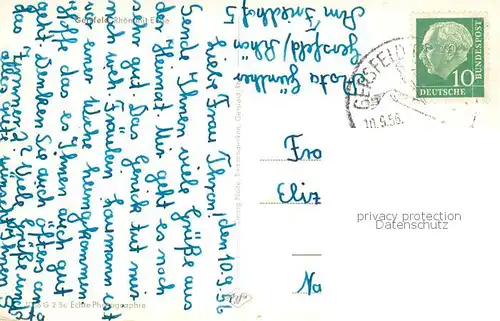 Gersfeld, Rhön mit Eube
Liebe Frau Thron! den 10.9.56
Sende Ihnen viele Grüße aus
der Heimat. Mir geht es noch
sehr gut. Das Genick tut mir
noch weh. Fräulein Baumann ist
vor einer Woche heimgekommen
Hoffe das es Ihnen auch gut
geht. Denken Sie auch öfters an
das Zimmer 2? Viele Grüße und
alles gute wünscht Ihnen
Rosta Günther
Gersfeld/Rhön
Am Friedhof 5
DEUTSCHE BUNDESPOST
10
GERSFELD
10.9.56
Fra
Eliz
Na
privacy protection
Datenschutz
G 2 56 Echte Photographie